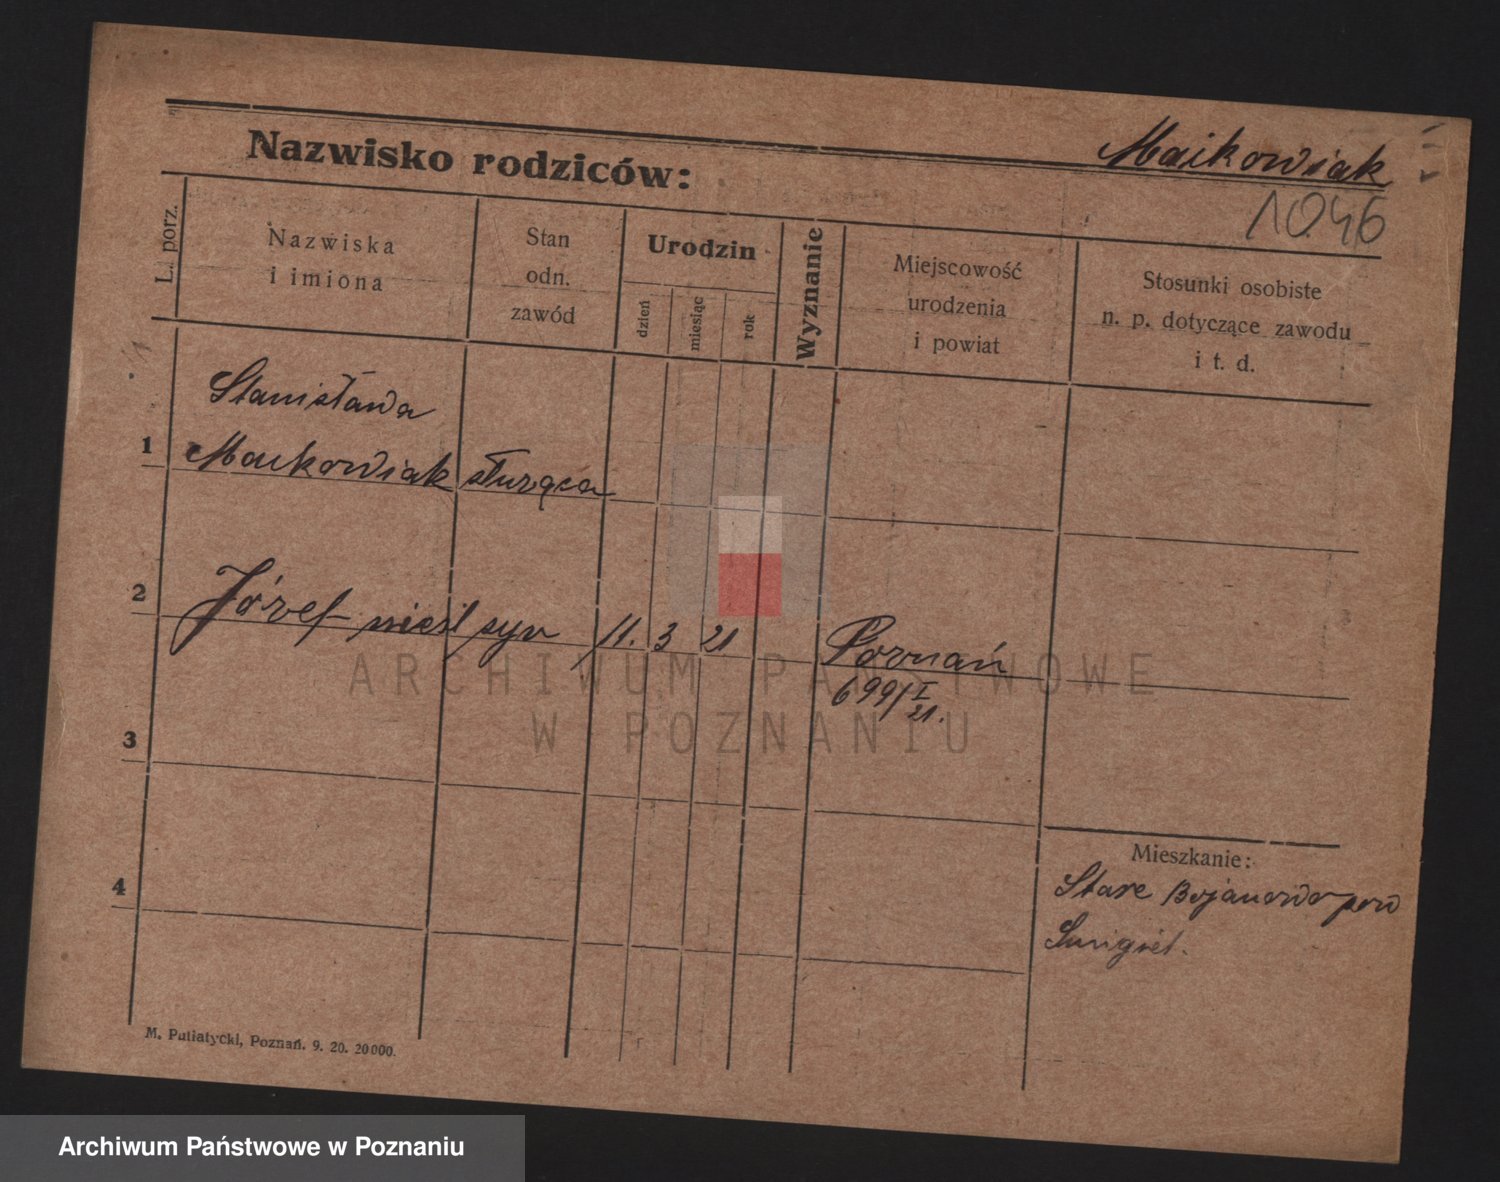 Maikowiak
Nazwisko rodziców:
1046
L. porz.
Nazwiska
i imiona
Stan
odn.
zawód
Urodzin
dzień
miesiąc
rok
Wyznanie
Miejscowość
urodzenia
i powiat
Stosunki osobiste
n. p. dotyczące zawodu
i t. d.
Stanisława
1 Maikowiak służąca
2 Józef nieśl syn 11. 3 21 Poznań
699/I
21.
3
4
Mieszkanie:
Stare Bojanowo pow
Śmigiel.
M. Putiatycki, Poznań. 9. 20. 20000.
ARCHIWUM PAŃSTWOWE
W POZNANIU
Archiwum Państwowe w Poznaniu